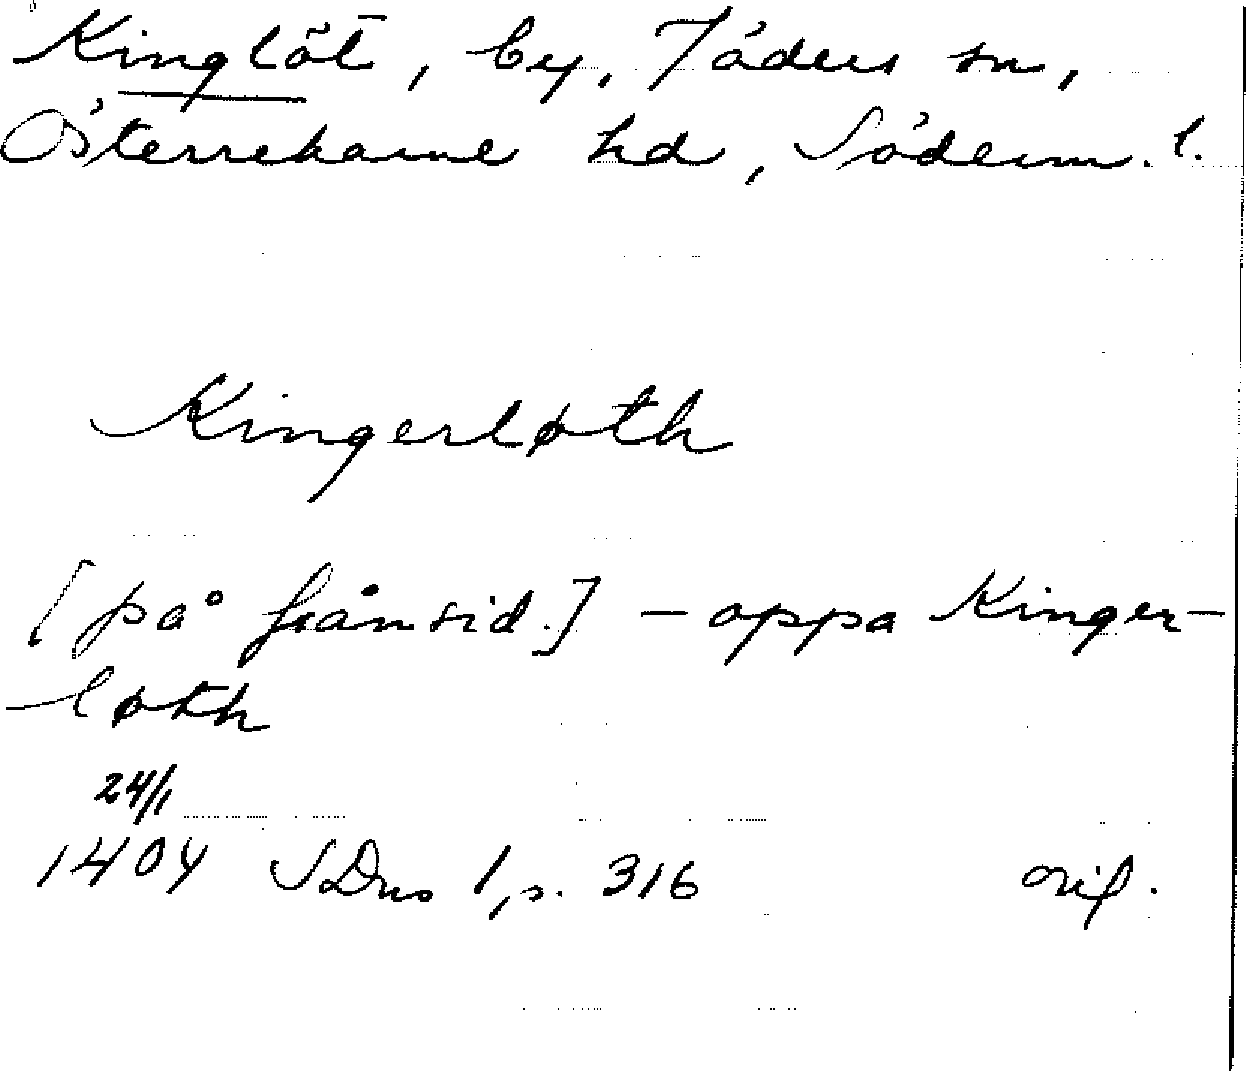 Kinglöt, by, Jäders sn,
Österrekarne hd, Söderm. l.
Kingerløth
[på frånsid.] – oppa Kinger-
løth
24/1
1404 SDns 1, s. 316 orig.